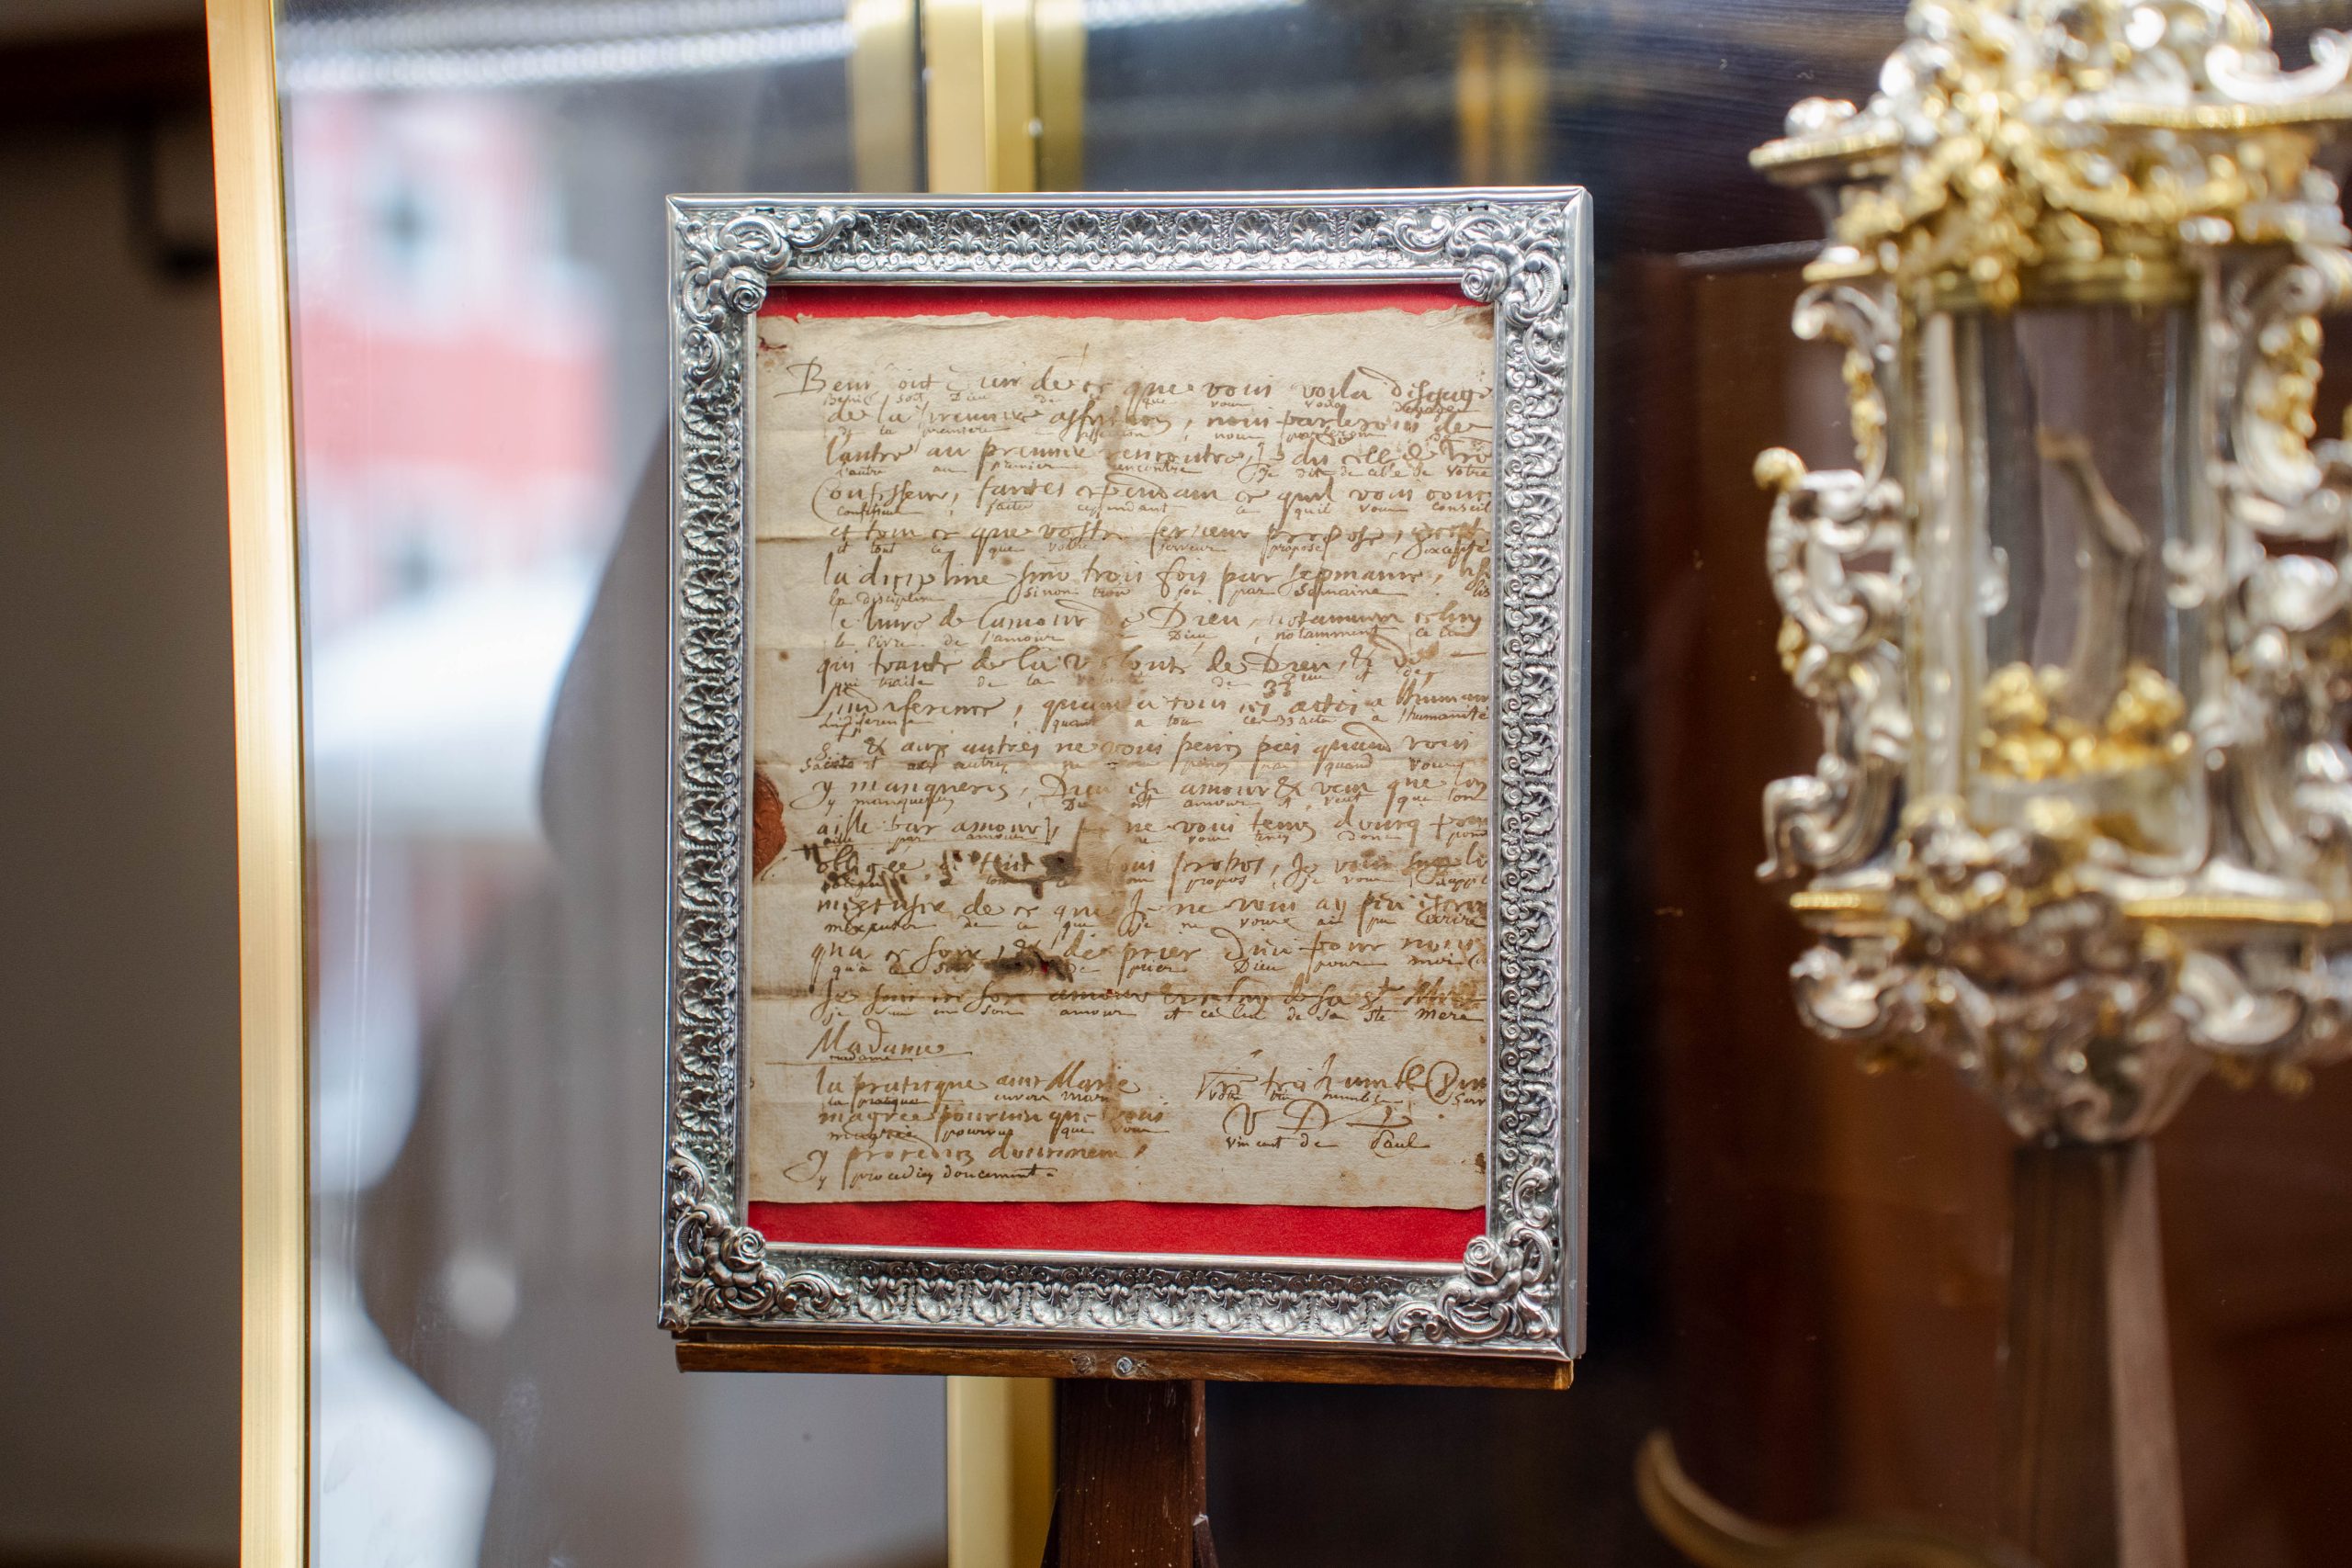 Beni soit Dieu de ce que vous voila desgagé
Benit soit Dieu de ce que vous voila degagée
de la premiere affliction, nous parlerons de
de la premiere affliction, nous parlerons de
lautre au premier rencontre, Je dis celle de vre
l'autre au premier rencontre Je dit de celle de votre
Confesseur, faites cependam ce quil vous conse
confesseur, faites cependant ce quil vous conseil
et tout ce que vostre ferueur propose, except
et tout ce que votre ferveur propose, excepté
la discipline sino trois fois par sepmaine,
la discipline sinon trois fois par semaine
le liure de lamour de Dieu, notamment celuy
le livre de l'amour de Dieu, notamment celui
qui traite de la volonte de Dieu, & de
qui traite de la de Dieu et de
lindiference, quant a tous ces 33 actes a lhuman
lindiference, quant a tous ces 33 actes à l'humanité
& aux autres ne vous peines pas quand vous
sainte et aux autres ne vous peines pas quand vous
y manqueres, Dieu est amour & veut que lon
y manquerez, Dieu est amour et veut que lon
aille par amour, ne vous tenes doncq pour
aille par amour, ne vous tenez donc pour
obligee a tous propos, Je vous supplie
obligée a tous propos, Je vous supplie
mexcuser de ce que Je ne vous ay peu escrire
mexcuser de ce que je ne vous ait pu écrire
qua ce soir, & de prier Dieu pour moy
qu'à ce soir de prier Dieu pour moi
Je suis en son amour & celuy de sa Ste Mere
je suis en son amour et celui de sa Ste Mere
Madame
madame
la praticque Marie
la pratique Marie
magree pourueu que vous
magrée pourvue que vous
y procedies doucement
y procediez doucement.
Vre tres humble
Votre très humble Serv
V D P
Vincent de Paul